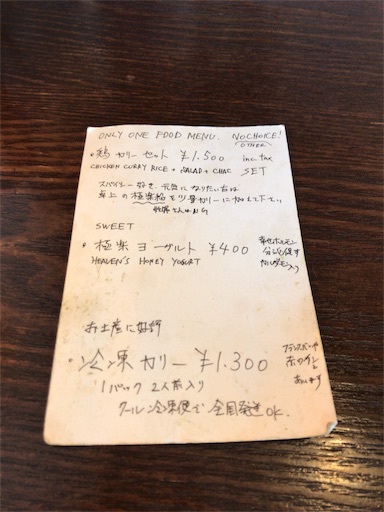 ONLY ONE FOOD MENU. NO CHOICE!
OTHER
・鶏カリーセット ¥1,500 inc. tax
CHICKEN CURRY RICE + SALAD + CHAI SET
スパイシー好き、元気になりたい方は
卓上の極楽塩を少量カリーに加えて下さい
妊婦さんはNG
SWEET
・極楽ヨーグルト ¥400
HEAVEN'S HONEY YOGURT
幸せホルモン
分泌を促す
入り
お土産に好評
・冷凍カリー ¥1,300
1パック 2人前入り
クール冷凍便で全国発送OK.
フランスパンや
赤ワインと
あいます